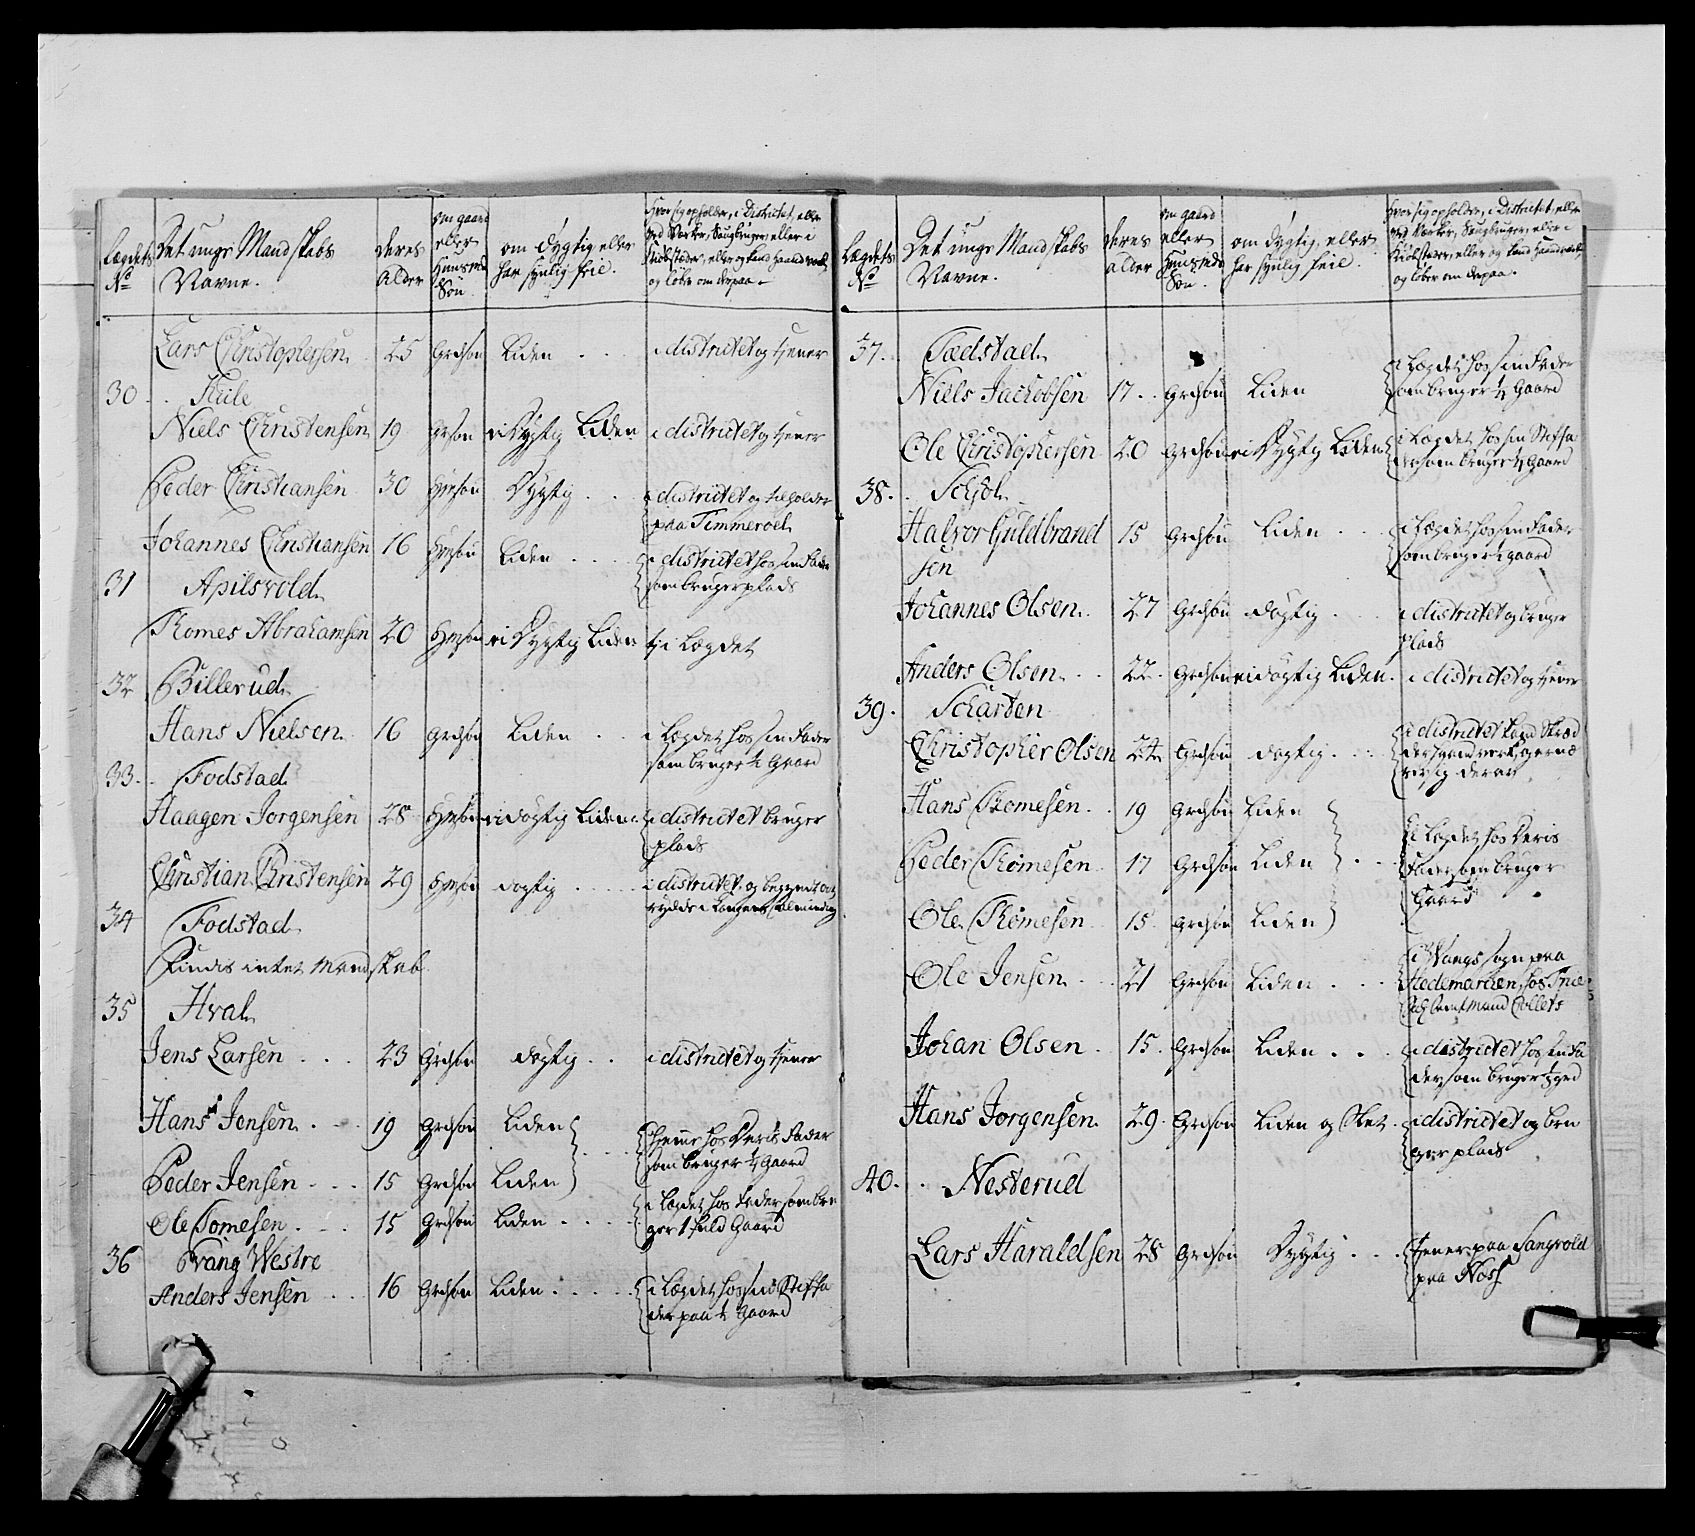 Lægdets No
Det unge Mandskabs Navne.
deres Alder
om gaard eller Huusmds Søn
om dygtig eller har synlig feil.
hvor sig opholder, i Districtet, eller
ved Værker, Saugbruger, eller i
Kiøbstæder, eller og kand haandværk
og løber om derpaa.
Lars Christophersen 25 Grdsøn Liden . . . i districtet og tiener
30 . . Huile
Niels Christensen 19 Grdsøn ei Dygtig Liden i districtet og tiener
Peder Christiansen 30 Hmsøn Dygtig . . . i districtet og opholder
paa Timmeroel
Johannes Christiansen 16 Hmsøn Liden . . . . i districtet hos sin Fader
som bruger plads
31 Apilsvold
Thomes Abrahamsen 20 Hmsøn ei Dygtig Liden i Lægdet
32 Billerud
Hans Nielsen 16 Grdsøn Liden . . i Lægdet hos sin Fader
som bruger ½ Gaard
33 . . Fodstad
Haagen Jorgensen 28 Hmsøn ei dogtig Liden i districtet bruger
plads
Christian Christensen 29 Hmsøn dogtig . . . . . i districtet og
34 Fodstad
Findis intet Mandskab
35 Hval
Jens Larsen . . . 23 Grdsøn dogtig . . i districtet og tiener
Hans Jensen . . . 19 Grdsøn Liden hiemme hos Deris Fader
som bruger ½ Gaard
Peder Jensen . . . 15 Grdsøn Liden
Ole Tomesen . . . 15 Grdsøn Liden . . . . . i Lægdet hos Fader som bru
ger 1 fuld Gaard
36 Tvang Westre
Anders Jensen . . 16 Grdsøn Liden . . . . . i Lægdet hos sin Stiffa
der paa ½ Gaard
Lægdets No
Det unge Mandskabs Navne.
deres alder
om gaard eller Huusmds Søn.
om dygtig, eller har synlig feil.
hvor sig opholder, i Districtet, eller
ved Værker, Saugbruger, eller i
Kiøbstæder, eller og kand haandværk
og løber om derpaa.
37. Tædstad
Niels Jachobsen 17 . . Grdsøn Liden i Lægdet hos sin Fader
som bruger ½ Gaard
Ole Christophersen 20 Grdsøn ei Dygtig Liden i Lægdet hos sin Stiffa
der som bruger ½ Gaard
38. . Schiøl
Halvor Guldbrand
sen 15 Grdsøn Liden . . . i Lægdet hos sin Fader
som bruger gaard
Johannes Olsen . 27 Grdsøn dogtig . . . i districtet og bruger
plads
Anders Olsen . . . 22 . Grdsøn ei dogtig Liden . i districtet og tiener
39. Scharten
Christopher Olsen 24 Grdsøn dogtig . . . i districtet kand Skræd
der haandverk og ernæ
rer sig deraf
Hans Thomesen . . 19 Grdsøn Liden
Peder Thomesen . 17 Grdsøn Liden . . . i Lægdet hos Deris
Fader som bruger
Gaard
Ole Thomesen 15 . Grdsøn Liden
Ole Jensen . . . 21 Grdsøn Liden . . . i Wangs sogn paa
Hedemarchen, hos
Amtmand Collets
Johan Olsen . 15 . Grdsøn Liden . . . i districtet hos sin Fa
der som bruger ½ grd
Hans Jorgensen 29 . Grdsøn Liden og Slet . i districtet og bru
ger plads
40 . . Nesterud
Lars Haraldsen 28 Grdsøn Dygtig . . . tiener paa Sangvold
paa Næss